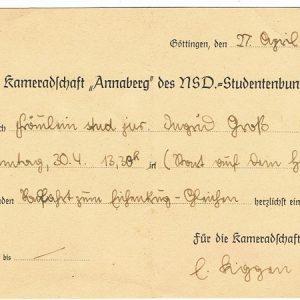 Göttingen, den 27. April
Kameradschaft „Annaberg" des NSD.=Studentenbun
ch Fräulein stud jur. Ingrid Groß
nntag, 30.4. 13,30h in (Start auf dem H
nden Radfahrt zum Eichenkrug-Gleichen herzlich ein
Für die Kameradschaft
bis